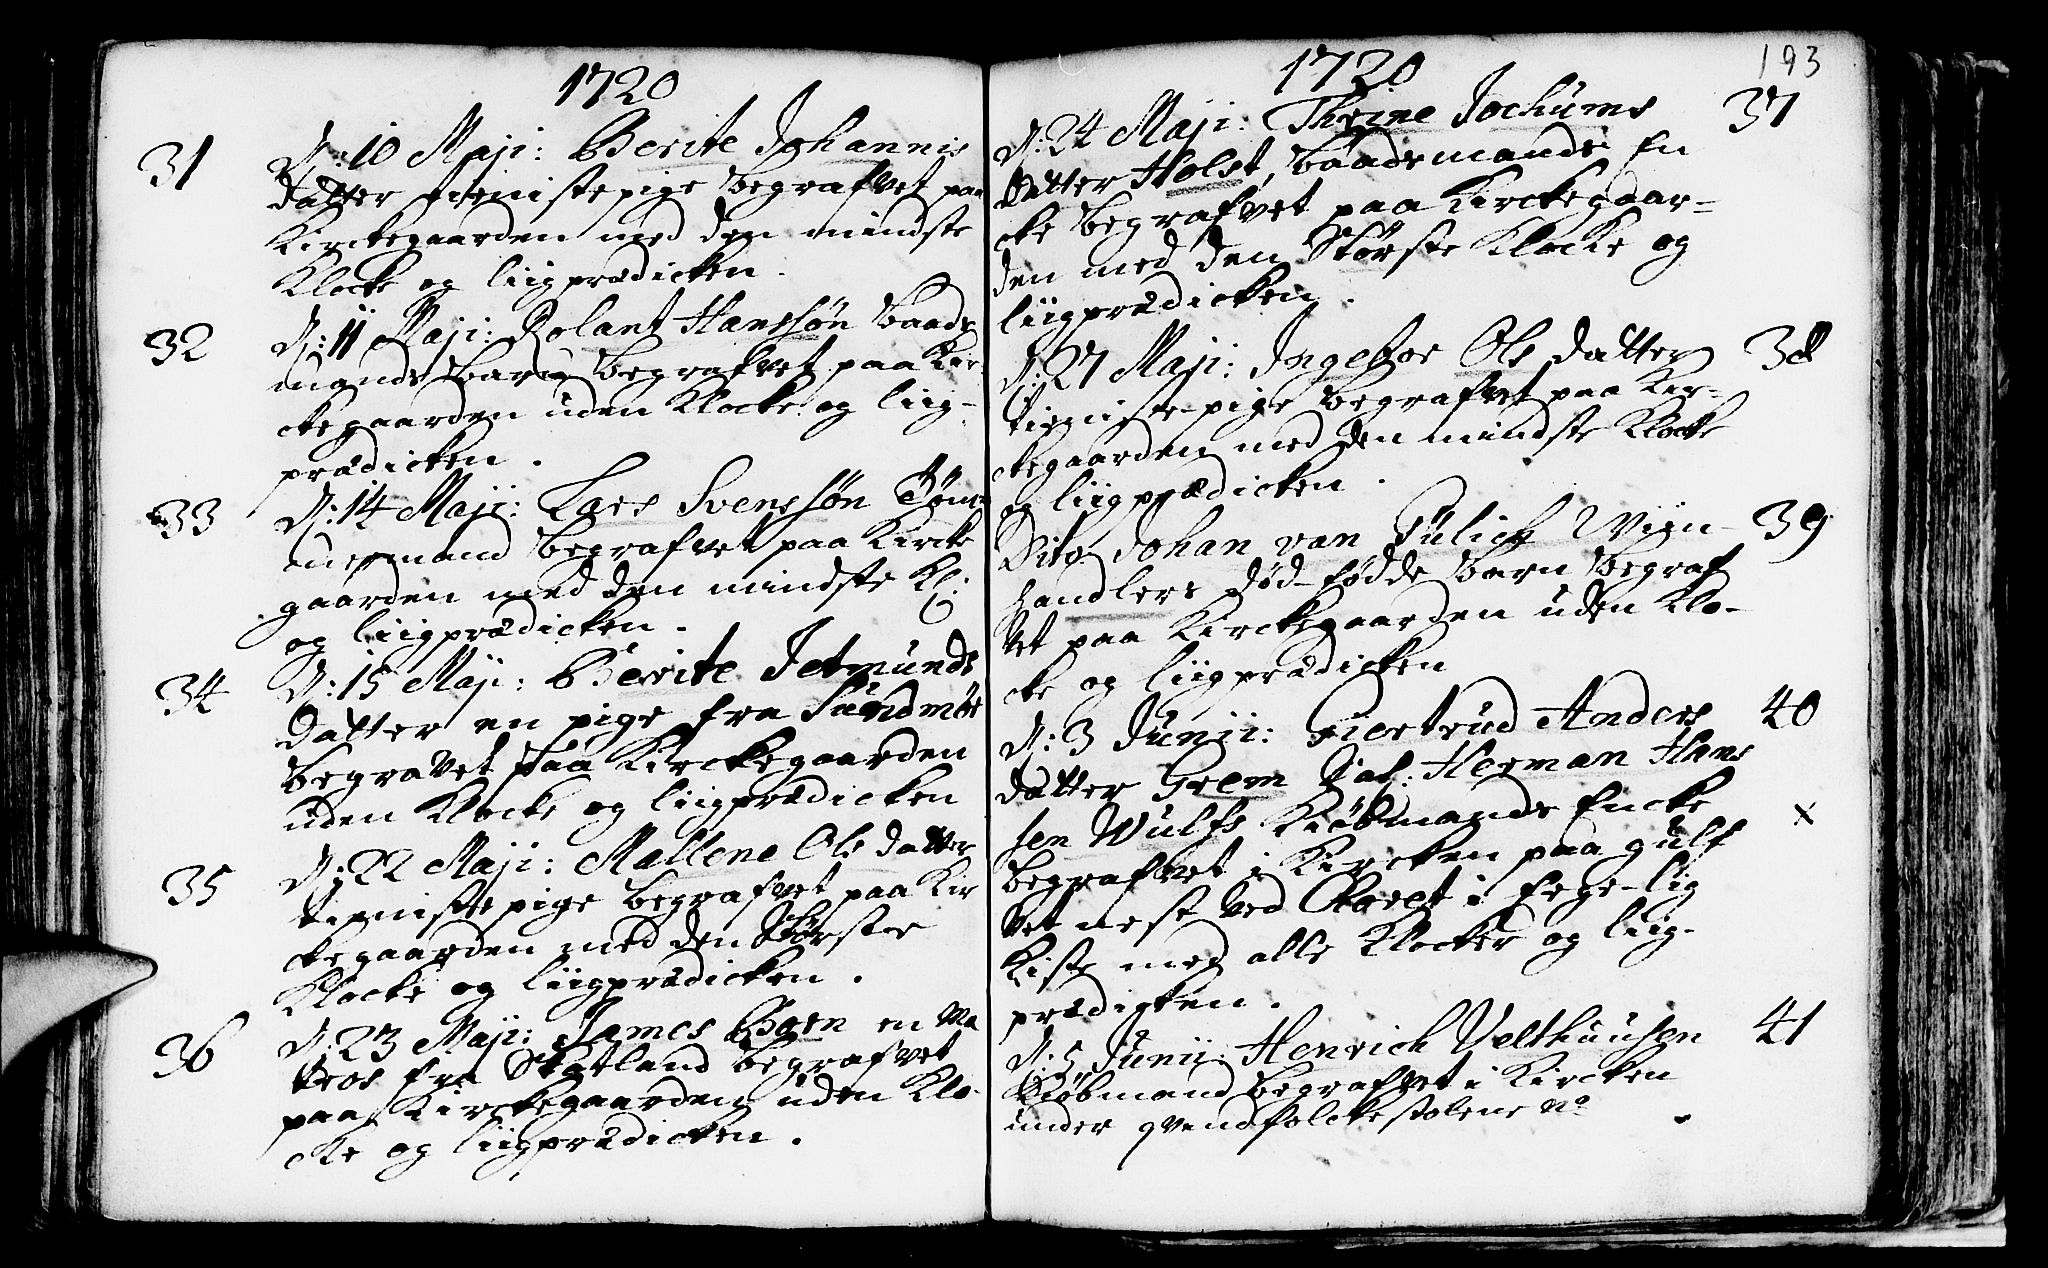 1720
31 D: 10 Maji: Berite Johannis
datter tienistepige begrafvet paa
Kirckegaarden med den mindste
Klocke og liigprædicken.
32 D: 11 Maji: Rolant Hanssøn Baads
mands Barn begrafvet paa Kir-
ckegaarden uden Klocke og liig-
prædicken.
33 D: 14 Maji: Lars Svenssøn
mand begrafvet paa Kircke
gaarden med den mindste Kl:
og liigprædicken.
34 D: 15 Maji: Berite Jetmunds
datter en pige fra Sundmør
begravet paa Kirckegaarden
uden Klocke og liigprædicken
35 D: 22 Maji: Mallene Ols datter
tieniste pige begrafvet paa Kir
ckegaarden med den Störste
Klocke og liigprædicken.
36 D: 23 Maji: James Born en Ma
tros fra Skotland begrafvet
paa Kirckegaarden uden Klo-
cke og liigprædicken.
193
1720
D: 24 Maji: Thrine Jochums 37
datter Holst, Baadsmands En
cke begrafvet paa Kirckegaar=
den med den Störste Klocke og
liigprædicken.
D: 27 Maji: Ingebor Ols datter 38
tieniste-pige begrafvet paa Kir-
ckegaarden med den mindste Klocke
og liigprædicken.
Dito Johan van Pülich Wiin- 39
handlers død-fødde Barn begraf
vet paa Kirckegaarden uden Klo-
cke og liigprædicken
D: 3 Junii: Giertrud Anders 40
datter Grem Sal: Herman Hans
sen Wulfs Kiöbmands Encke x
begrafvet i Kircken paa gulf
vet nest ved Choret i Ege-lig
Kiste med alle Klocker og liig-
prædigken.
D: 5 Junii: Henrich Velthuusen 41
Kiöbmand begrafvet i Kircken
under qvindfolckestolene No .